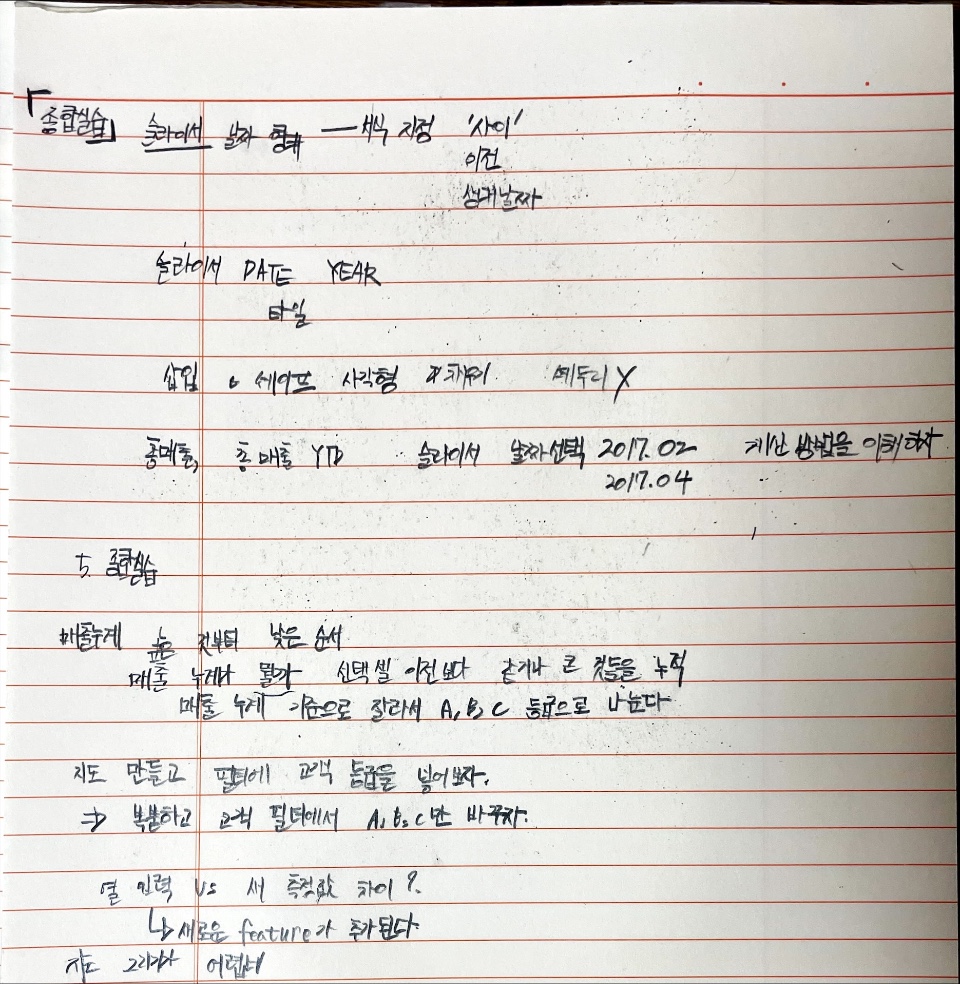 「종합실습」 슬라이서 날짜 형태 — 서식 지정 '사이'
이전
상대날짜
슬라이서 DATE YEAR
타일
삽입 셰이프 사각형 채우기 테두리 X
총매출, 총매출 YTD 슬라이서 날짜선택 2017.02 계산 방법을 이해하자
2017.04
5. 종합실습
매출누계 높은 것부터 낮은 순서
매출 누계가 뭘까 선택 셀 이전보다 같거나 큰 것들을 누적
매출 누계 기준으로 잘라서 A, B, C 등급으로 나눈다
지도 만들고 필터에 고객 등급을 넣어보자.
⇒ 복붙하고 고객 필터에서 A, B, C만 바꾸자.
열 입력 vs 새 측정값 차이?
↳ 새로운 feature가 추가된다.
지도 그리기가 어렵네